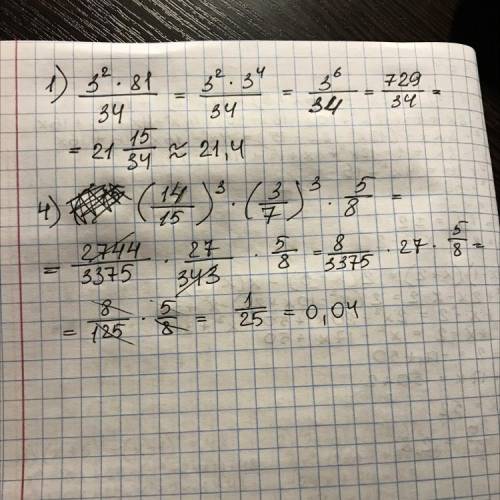 1) 3² · 81 / 34 = 3² · 3⁴ / 34 = 3⁶ / 34 = 729 / 34 =
= 21 15/34 ≈ 21,4
4) (14/15)³ · (3/7)³ · 5/8 =
= 2744/3375 · 27/343 · 5/8 = 8/3375 · 27 · 5/8 =
= 8/125 · 5/8 = 1/25 = 0,04